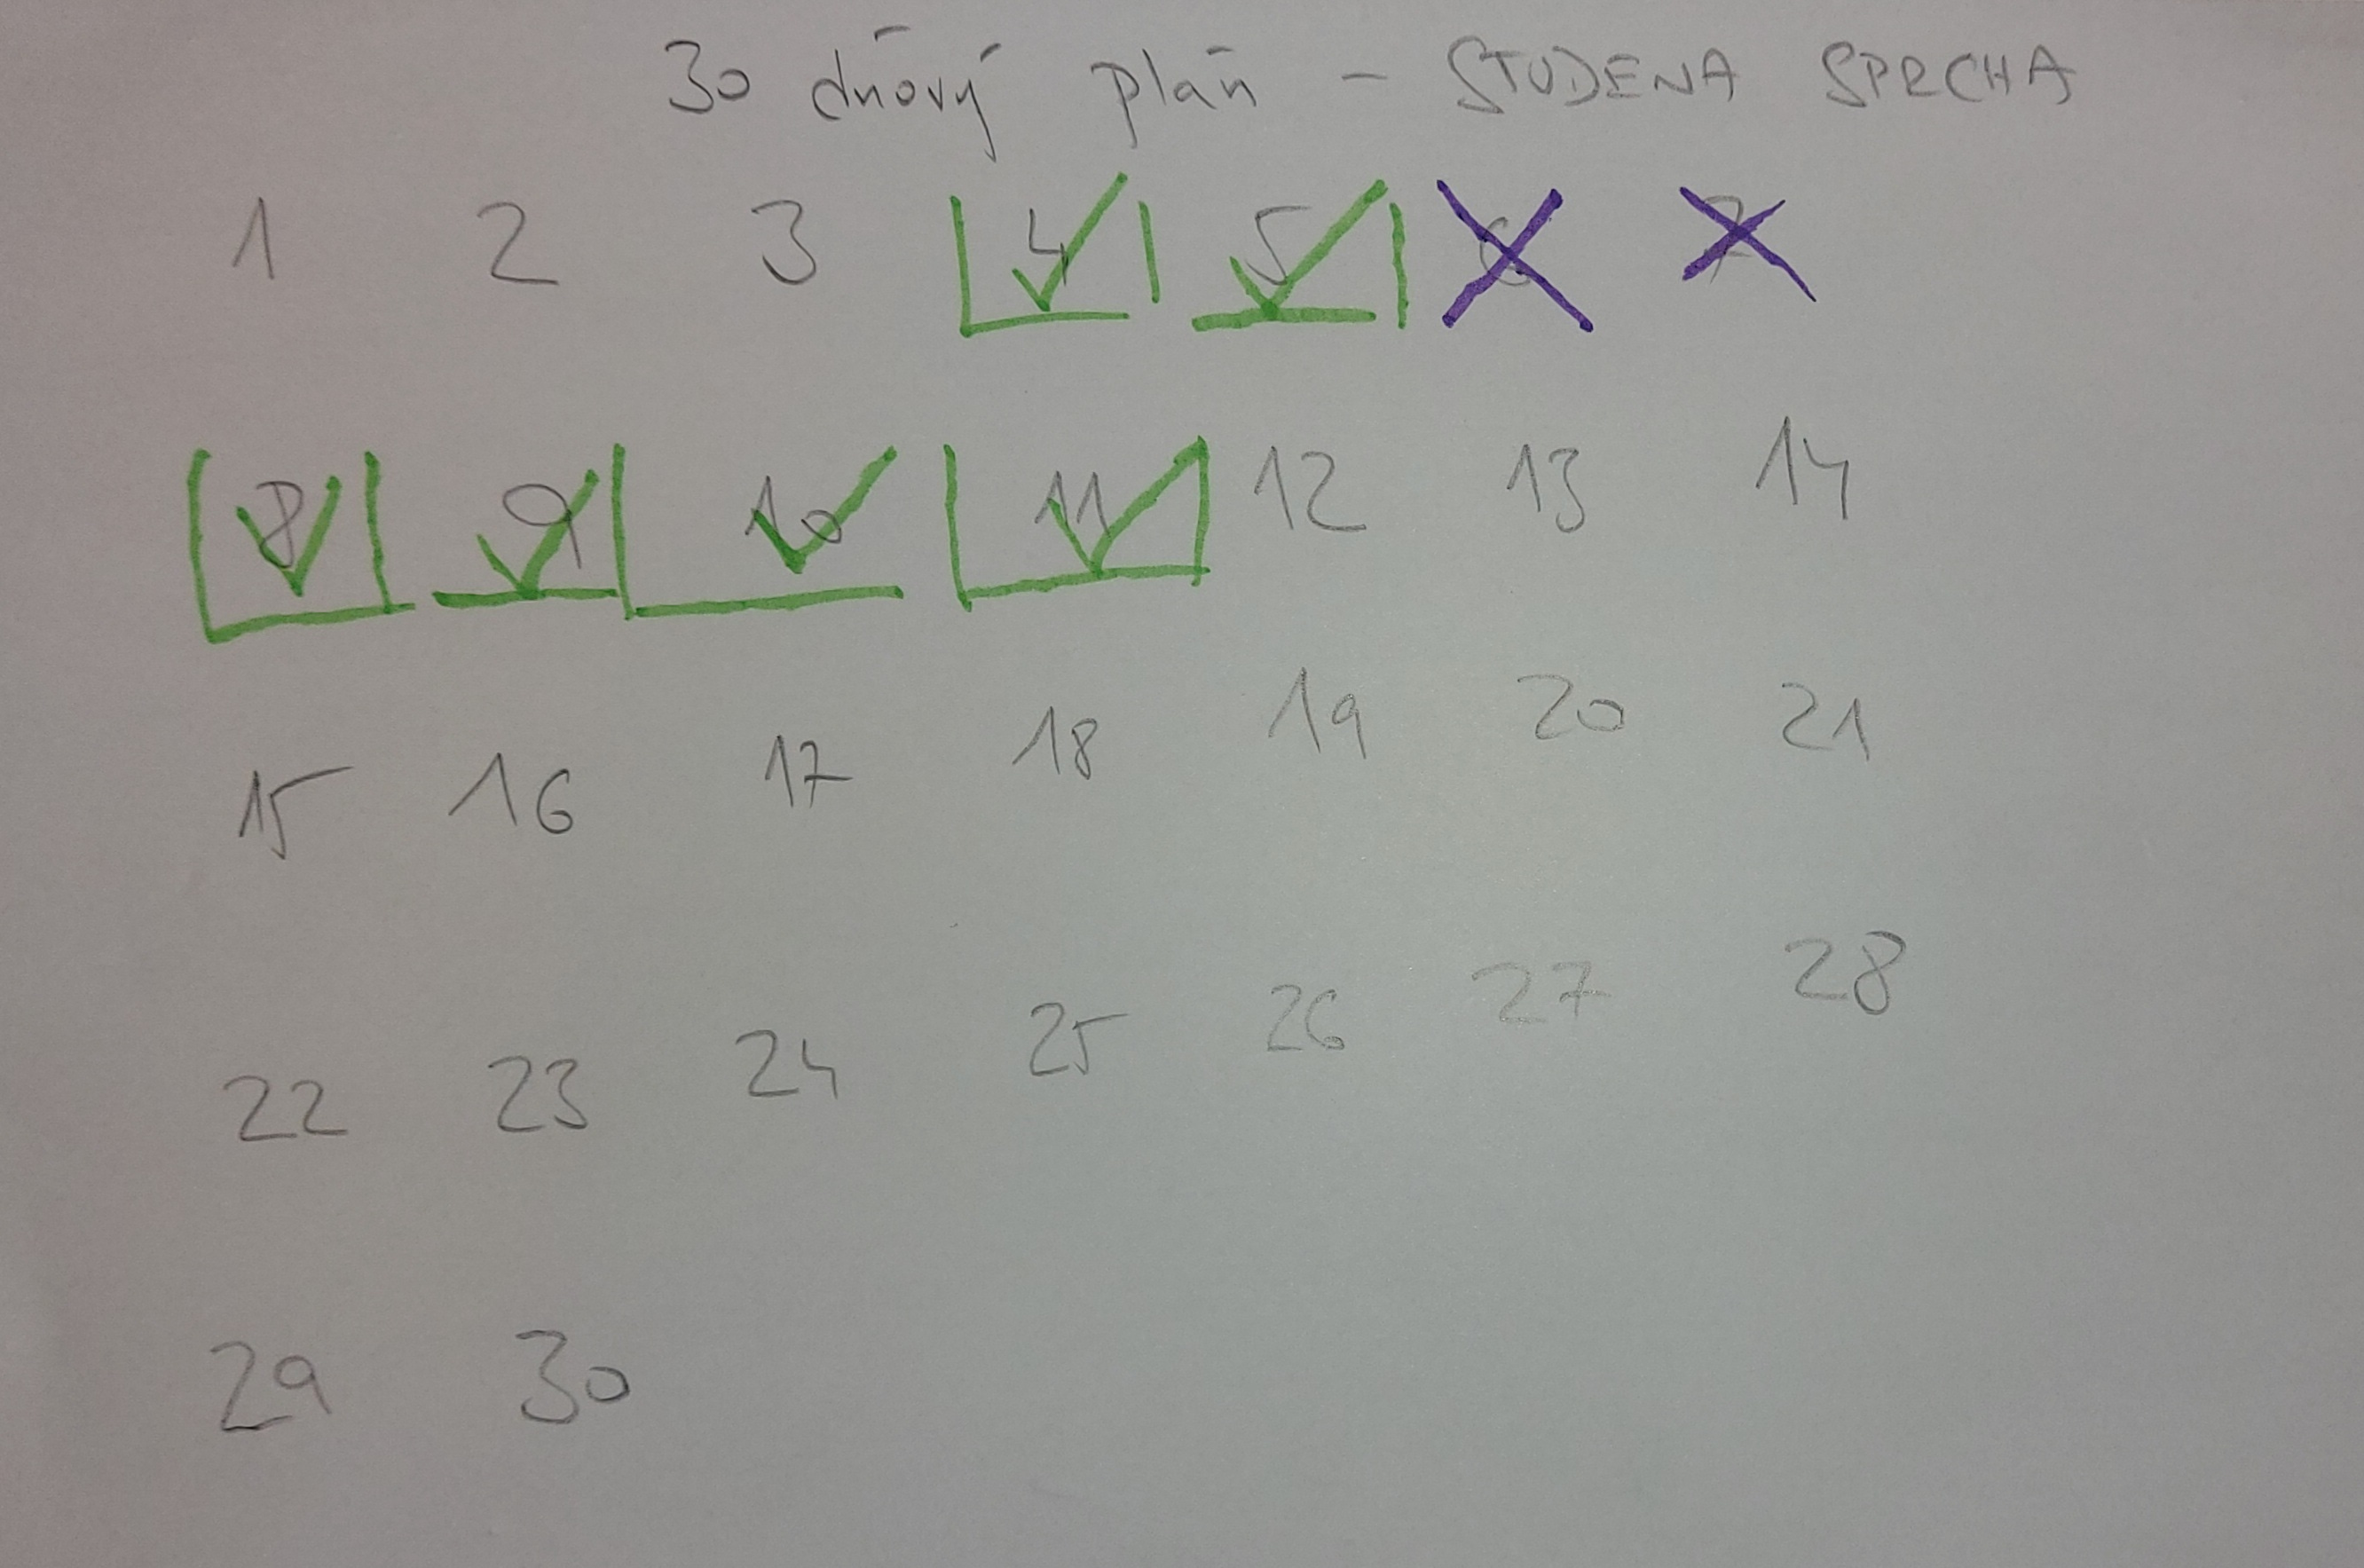 30 dňový plán - STUDENA SPRCHA
1 2 3 4 5 6 7
8 9 10 11 12 13 14
15 16 17 18 19 20 21
22 23 24 25 26 27 28
29 30